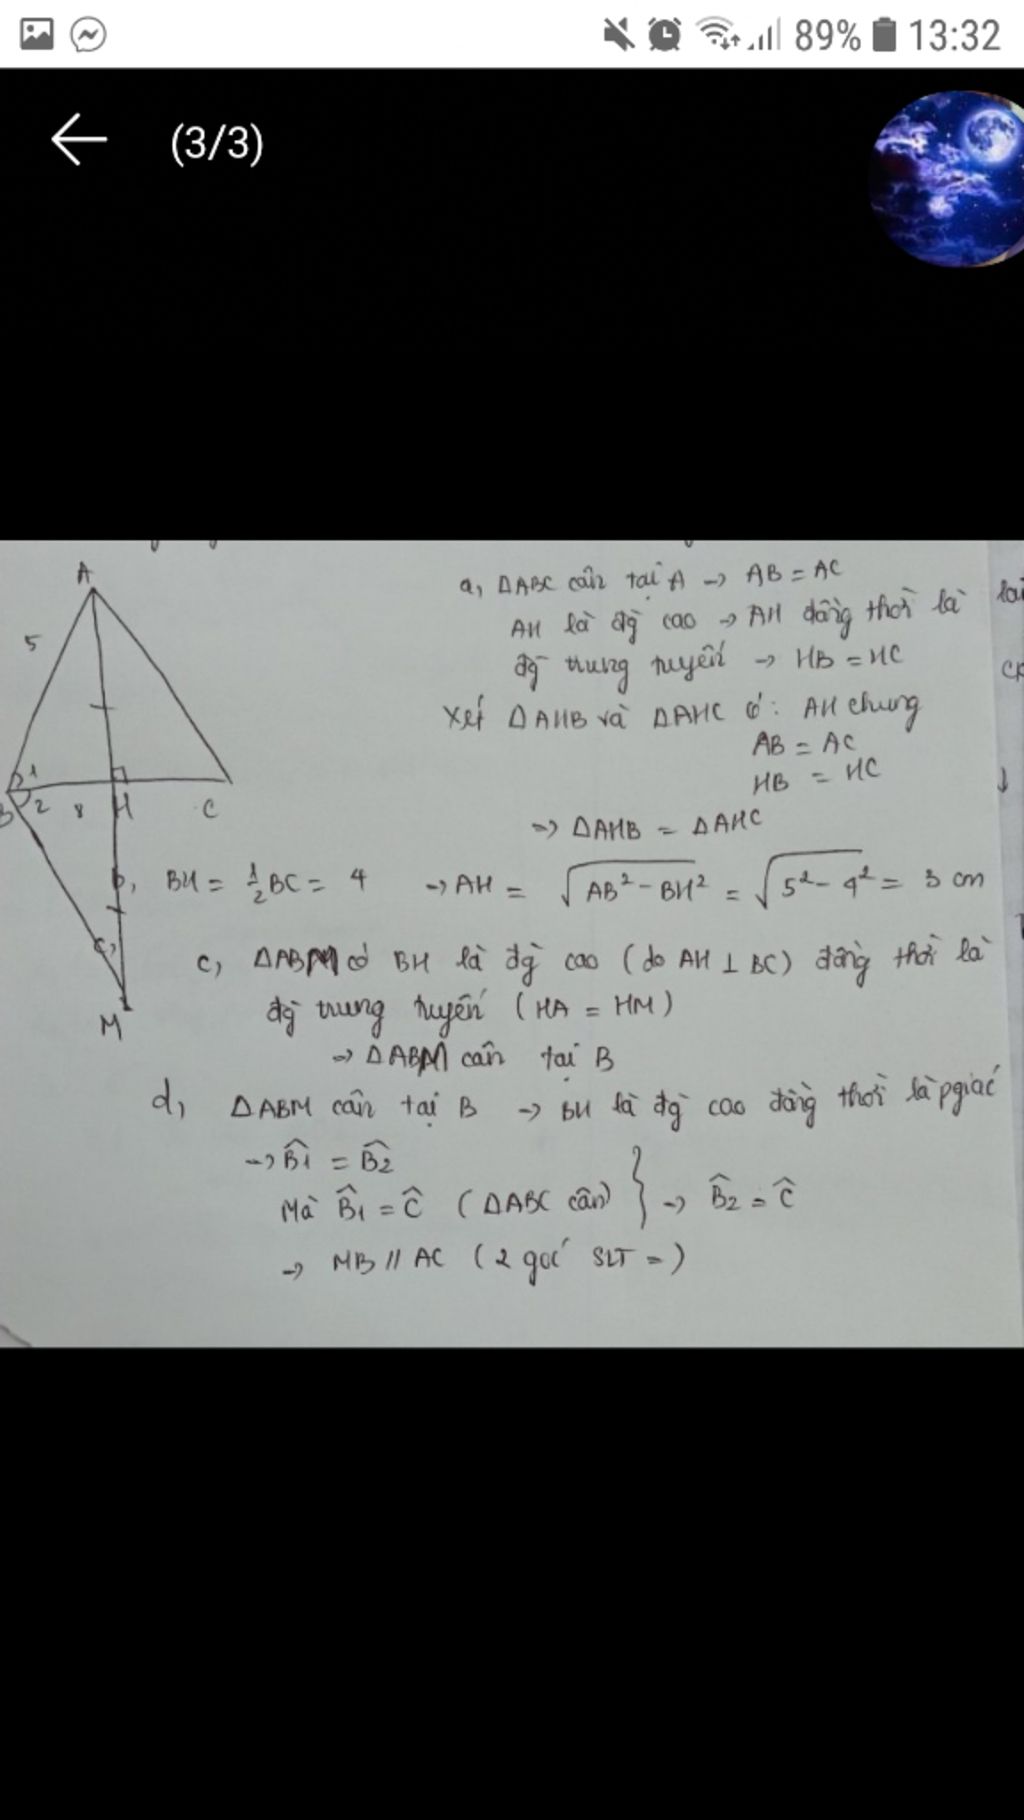 89% 13:32
(3/3)
A
5
1
B 2 8 H C
M
a, ΔABC cân tại A → AB = AC
AH là đg cao → AH đồng thời là
đg trung tuyến → HB = HC
Xét ΔAHB và ΔAHC có: AH chung
AB = AC
HB = HC
→ ΔAHB = ΔAHC
b, BH = 1/2 BC = 4 → AH = √(AB² - BH²) = √(5² - 4²) = 3 cm
c, ΔABM có BH là đg cao (do AH ⊥ BC) đồng thời là
đg trung tuyến (HA = HM)
→ ΔABM cân tại B
d, ΔABM cân tại B → BH là đg cao đồng thời là pgiác
→ B̂1 = B̂2
Mà B̂1 = Ĉ (ΔABC cân) } → B̂2 = Ĉ
→ MB // AC (2 góc SLT =)